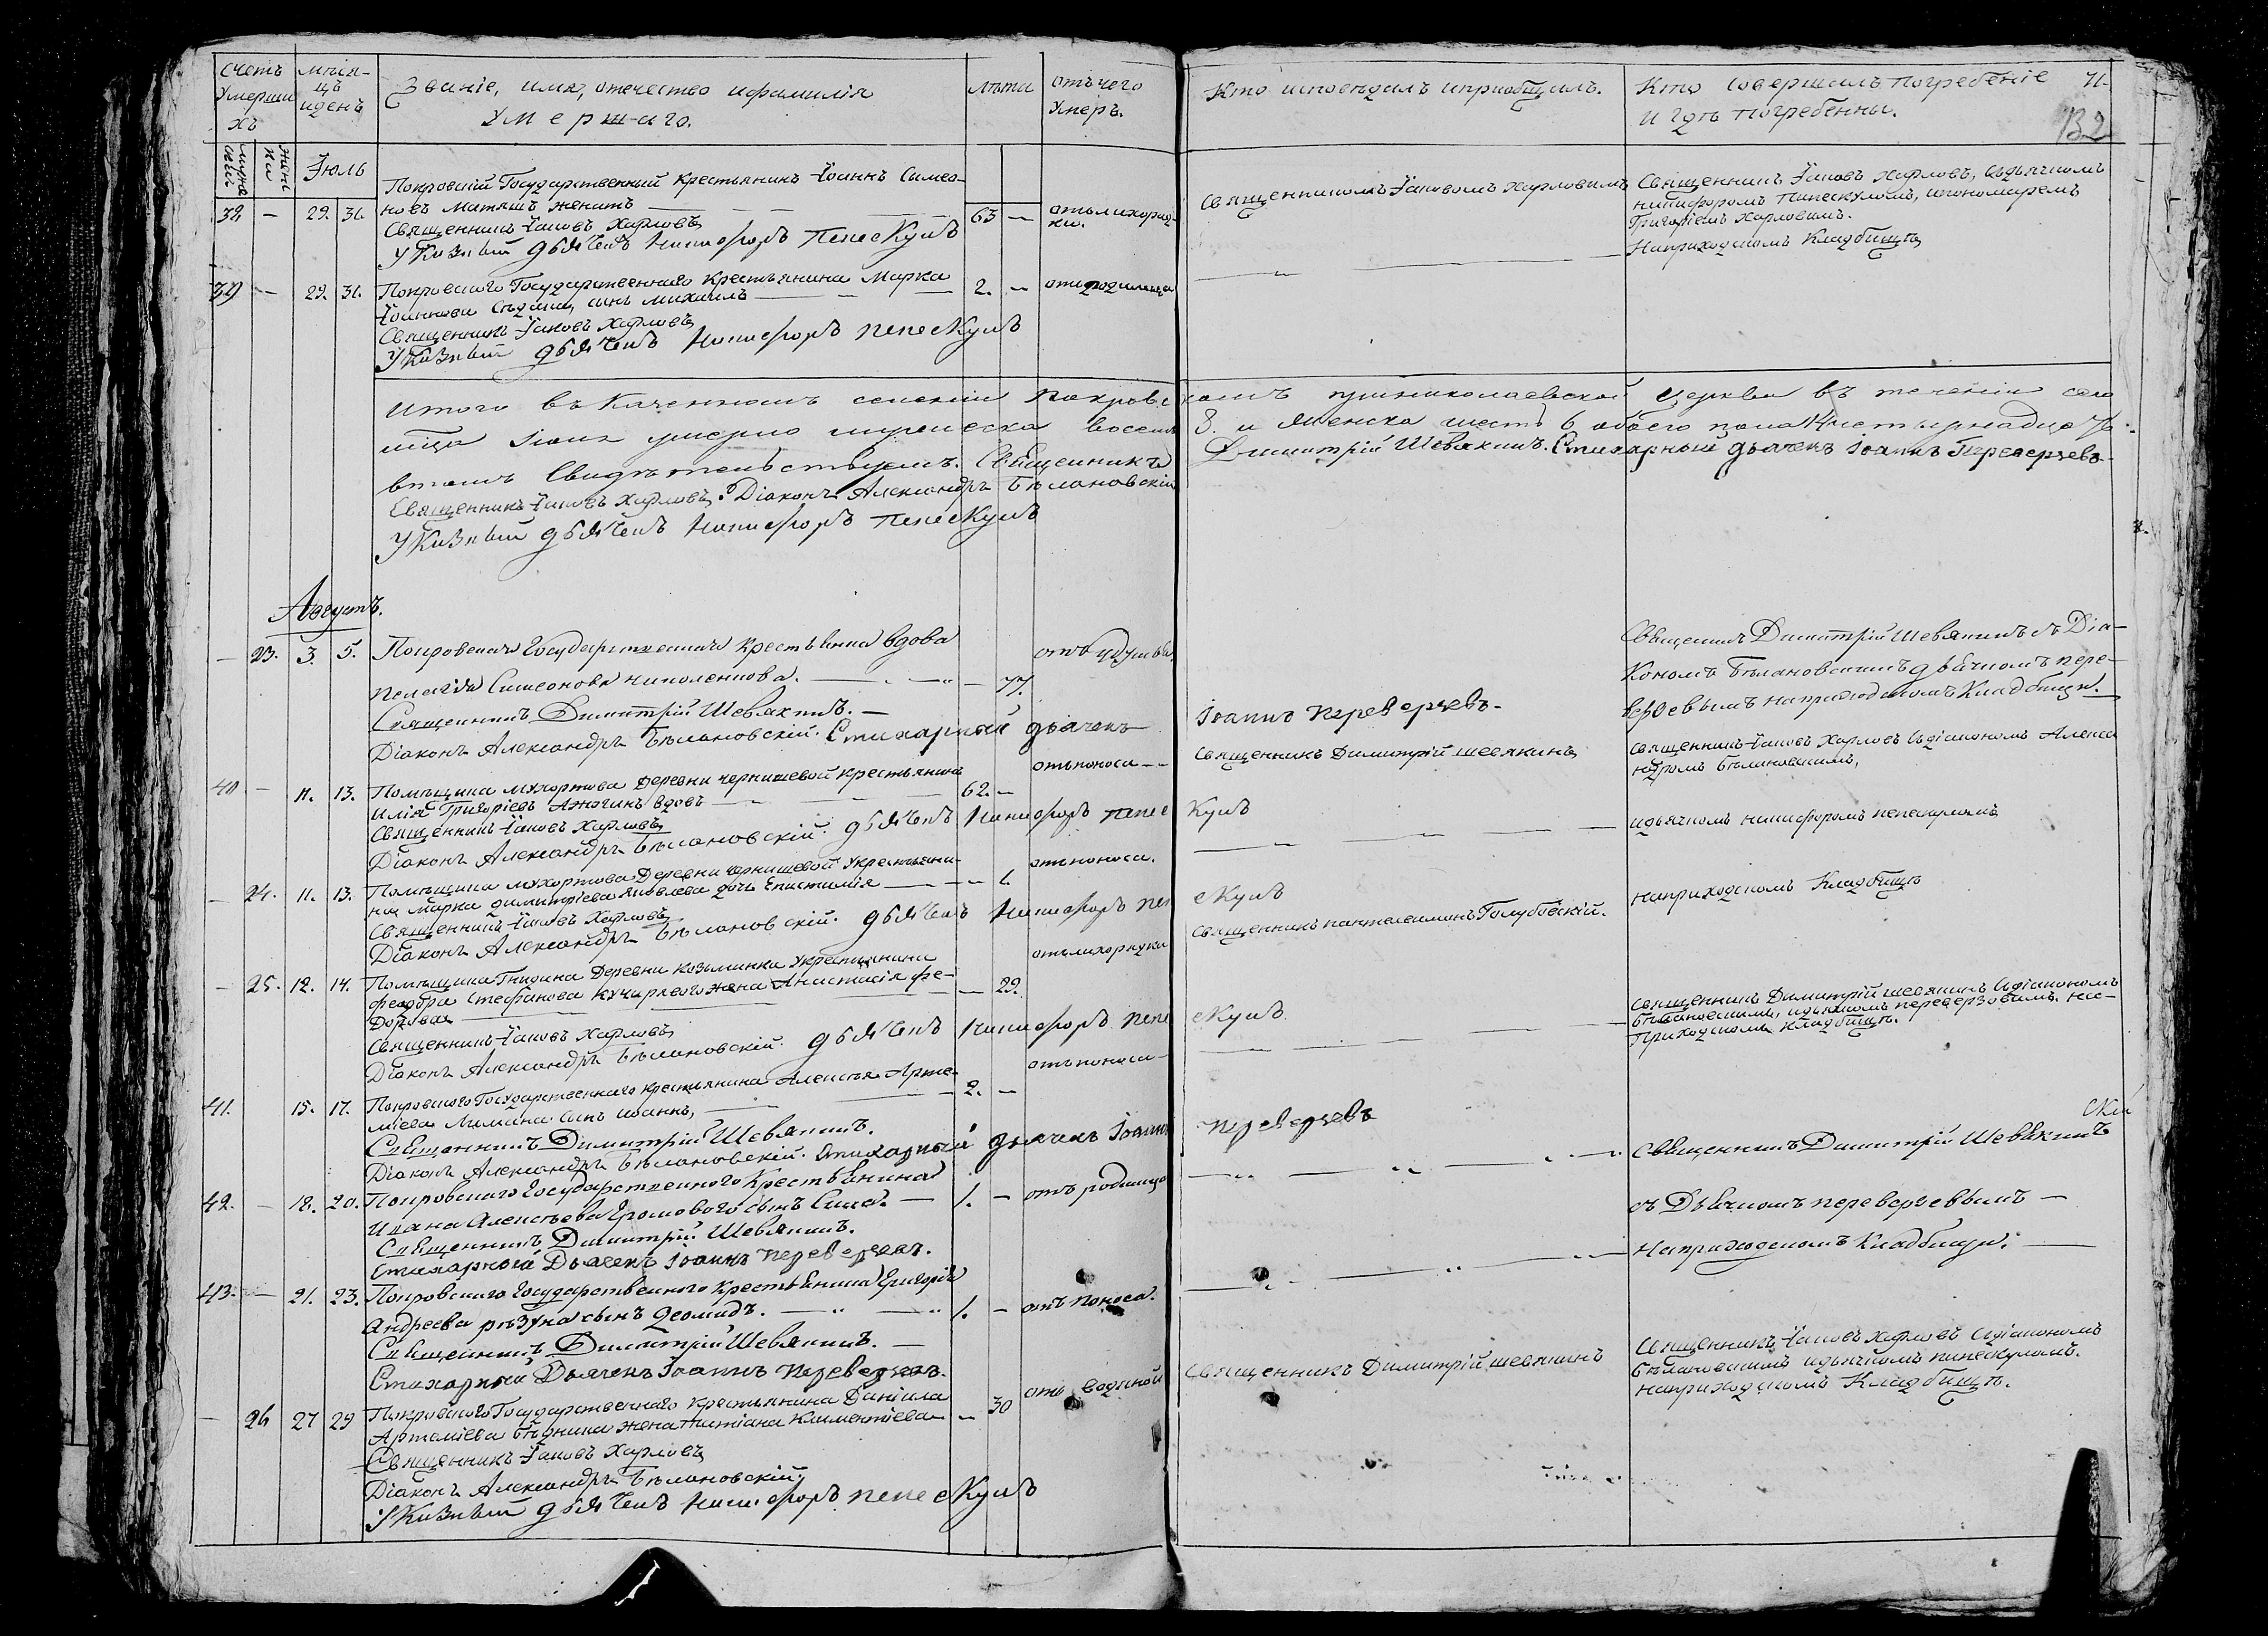 Счетъ Умершихъ
мѣсяцъ и день
Званіе, имя, отечество и фамилія
Умершаго.
лѣта
отъ чего Умеръ.
Кто исповѣдалъ и приобщилъ.
Кто совершилъ погребеніе
и гдѣ погребенны.
71.
132
Іюль
Покровскій Государственный Крестьянинъ Іоаннъ Симео-
38 — 29. 31. новъ Матяшъ женатъ — 63 — отъ лихорад-
ки.
Священникъ Іаковъ Харловъ
Указный дьячекъ Никифоръ Пепескулъ
Священникомъ Іаковомъ Харловымъ
Священникъ Іаковъ Харловъ, съ дьячкомъ
Никифоромъ Пепескуломъ, и пономаремъ
Григоріемъ Харловымъ.
На приходскомъ Кладбищѣ
39 — 29. 31. Покровскаго Государственнаго Крестьянина Марка 2. — отъ родимца
Іоаннова сынъ Михаилъ
Священникъ Іаковъ Харловъ
Указный дьячекъ Никифоръ Пепескулъ
Итого въ Казенномъ селеніи Покровскомъ при николаевской Церкви въ теченіи сего
мца Іюля умерло мужеска восемь 8. и женска шесть 6 обоего пола 14 четырнадца
въ томъ Свидѣтельствуемъ. Священникъ Димитрій Шевякинъ. Стихарный дьячекъ Іоаннъ Переверзевъ
Священникъ Іаковъ Харловъ. Діаконъ Александръ Бѣлановскій
Указный дьячекъ Никифоръ Пепескулъ
Августъ.
— 23. 3. 5. Покровская Государственная крестьянка вдова отъ удушья.
Пелагія Симеонова Николенкова. — 77.
Священникъ Димитрій Шевякинъ. —
Діаконъ Александръ Бѣлановскій. Стихарный дьячекъ Іоаннъ Переверзевъ.
Священникъ Димитрій Шевякинъ съ Діа-
кономъ Бѣлановскимъ дьячкомъ Пере-
верзевымъ на приходскомъ Кладбищѣ.
40 — 11. 13. Помѣщика Мухортова Деревни Чернышевой крестьянинъ отъ поноса —
Илія Григоріевъ вдовъ — 62. —
Священникъ Іаковъ Харловъ
Діаконъ Александръ Бѣлановскій. дьячекъ Никифоръ Пепескулъ
Священникъ Димитрій Шевякинъ
Священникъ Іаковъ Харловъ съ діакономъ Алекса
ндромъ Бѣлановскимъ,
и дьячкомъ Никифоромъ Пепескуломъ
— 24. 11. 13. Помѣщика Мухортова Деревни Чернышевой у крестьяни- отъ поноса.
на Марка Димитріева Яковлева дочь Епистимія — 1.
Священникъ Іаковъ Харловъ
Діаконъ Александръ Бѣлановскій. дьячекъ Никифоръ Пепескулъ
на приходскомъ Кладбищѣ
— 25. 12. 14. Помѣщика Гнидина Деревни Козьминки у крестьянина отъ лихорадки
Феодора Стефанова жена Анастасія Фе- — 29.
дорова
Священникъ Іаковъ Харловъ
Діаконъ Александръ Бѣлановскій. дьячекъ Никифоръ Пепескулъ
Священникъ Пантелеимонъ Голубовскій.
Священникъ Димитрій Шевякинъ съ діакономъ
Бѣлановскимъ, и дьячкомъ Переверзевымъ, на
Приходскомъ Кладбищѣ.
41. 15. 17. Покровскаго Государственнаго крестьянина Алексѣя Арте- отъ поноса —
міева Лимана сынъ Иоаннъ, — 2. —
Священникъ Димитрій Шевякинъ.
Діаконъ Александръ Бѣлановскій. Стихарный дьячекъ Іоаннъ Переверзевъ
42. — 18. 20. Покровскаго Государственнаго Крестьянина
Ивана Алексѣева Громового сынъ Сила. — 1. — отъ родимца
Священникъ Димитрій Шевякинъ.
Стихарный Дьячекъ Іоаннъ Переверзевъ.
Священникъ Димитрій Шевякинъ
съ Дьячкомъ Переверзевымъ —
На приходскомъ Кладбищѣ. —
43. — 21. 23. Покровскаго Государственнаго Крестьянина Григорія
Андреева Рѣзуна сынъ Деомидъ. — 1. — отъ поноса.
Священникъ Димитрій Шевякинъ. —
Стихарный Дьячекъ Іоаннъ Переверзевъ.
— 26 27 29 Покровскаго Государственнаго крестьянина Даніила — 30 отъ водяной
Артеміева Бѣдника жена Татіана Климентіева
Священникъ Іаковъ Харловъ
Діаконъ Александръ Бѣлановскій.
Указный дьячекъ Никифоръ Пепескулъ
Священникъ Димитрій Шевякинъ
Священникъ Іаковъ Харловъ съ діакономъ
Бѣлановскимъ и дьячкомъ Пепескуломъ.
на приходскомъ Кладбищѣ.